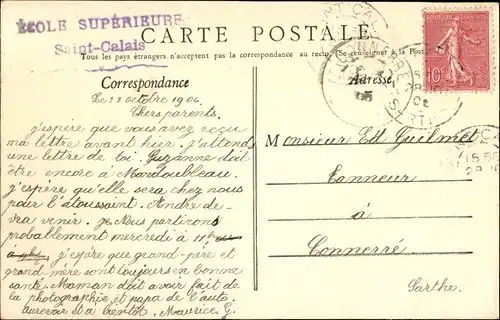 ÉCOLE SUPÉRIEURE
Saint-Calais
CARTE POSTALE
Tous les pays étrangers n'acceptent pas la correspondance au recto. (Se renseigner à la Poste)
Correspondance
Adresse
RÉPUBLIQUE FRANÇAISE
10c
Le 28 octobre 1906
Chers parents.
J'espère que vous avez reçu
ma lettre avant hier. J'attend
une lettre de toi. Suzanne doit
être encore à Mondoubleau.
J'espère qu'elle sera chez nous
pour la toussaint. André de-
vra venir. Nous partirons
probablement mercredi à 11h
j'espère que grand-père et
grand mère sont toujours en bonne
santé. Maman doit avoir fait de
la photographie et papa de l'auto.
aurevoir et à bientôt. Maurice G.
Monsieur Ed Guelmet
Tanneur
à
Connerré
Sarthe.